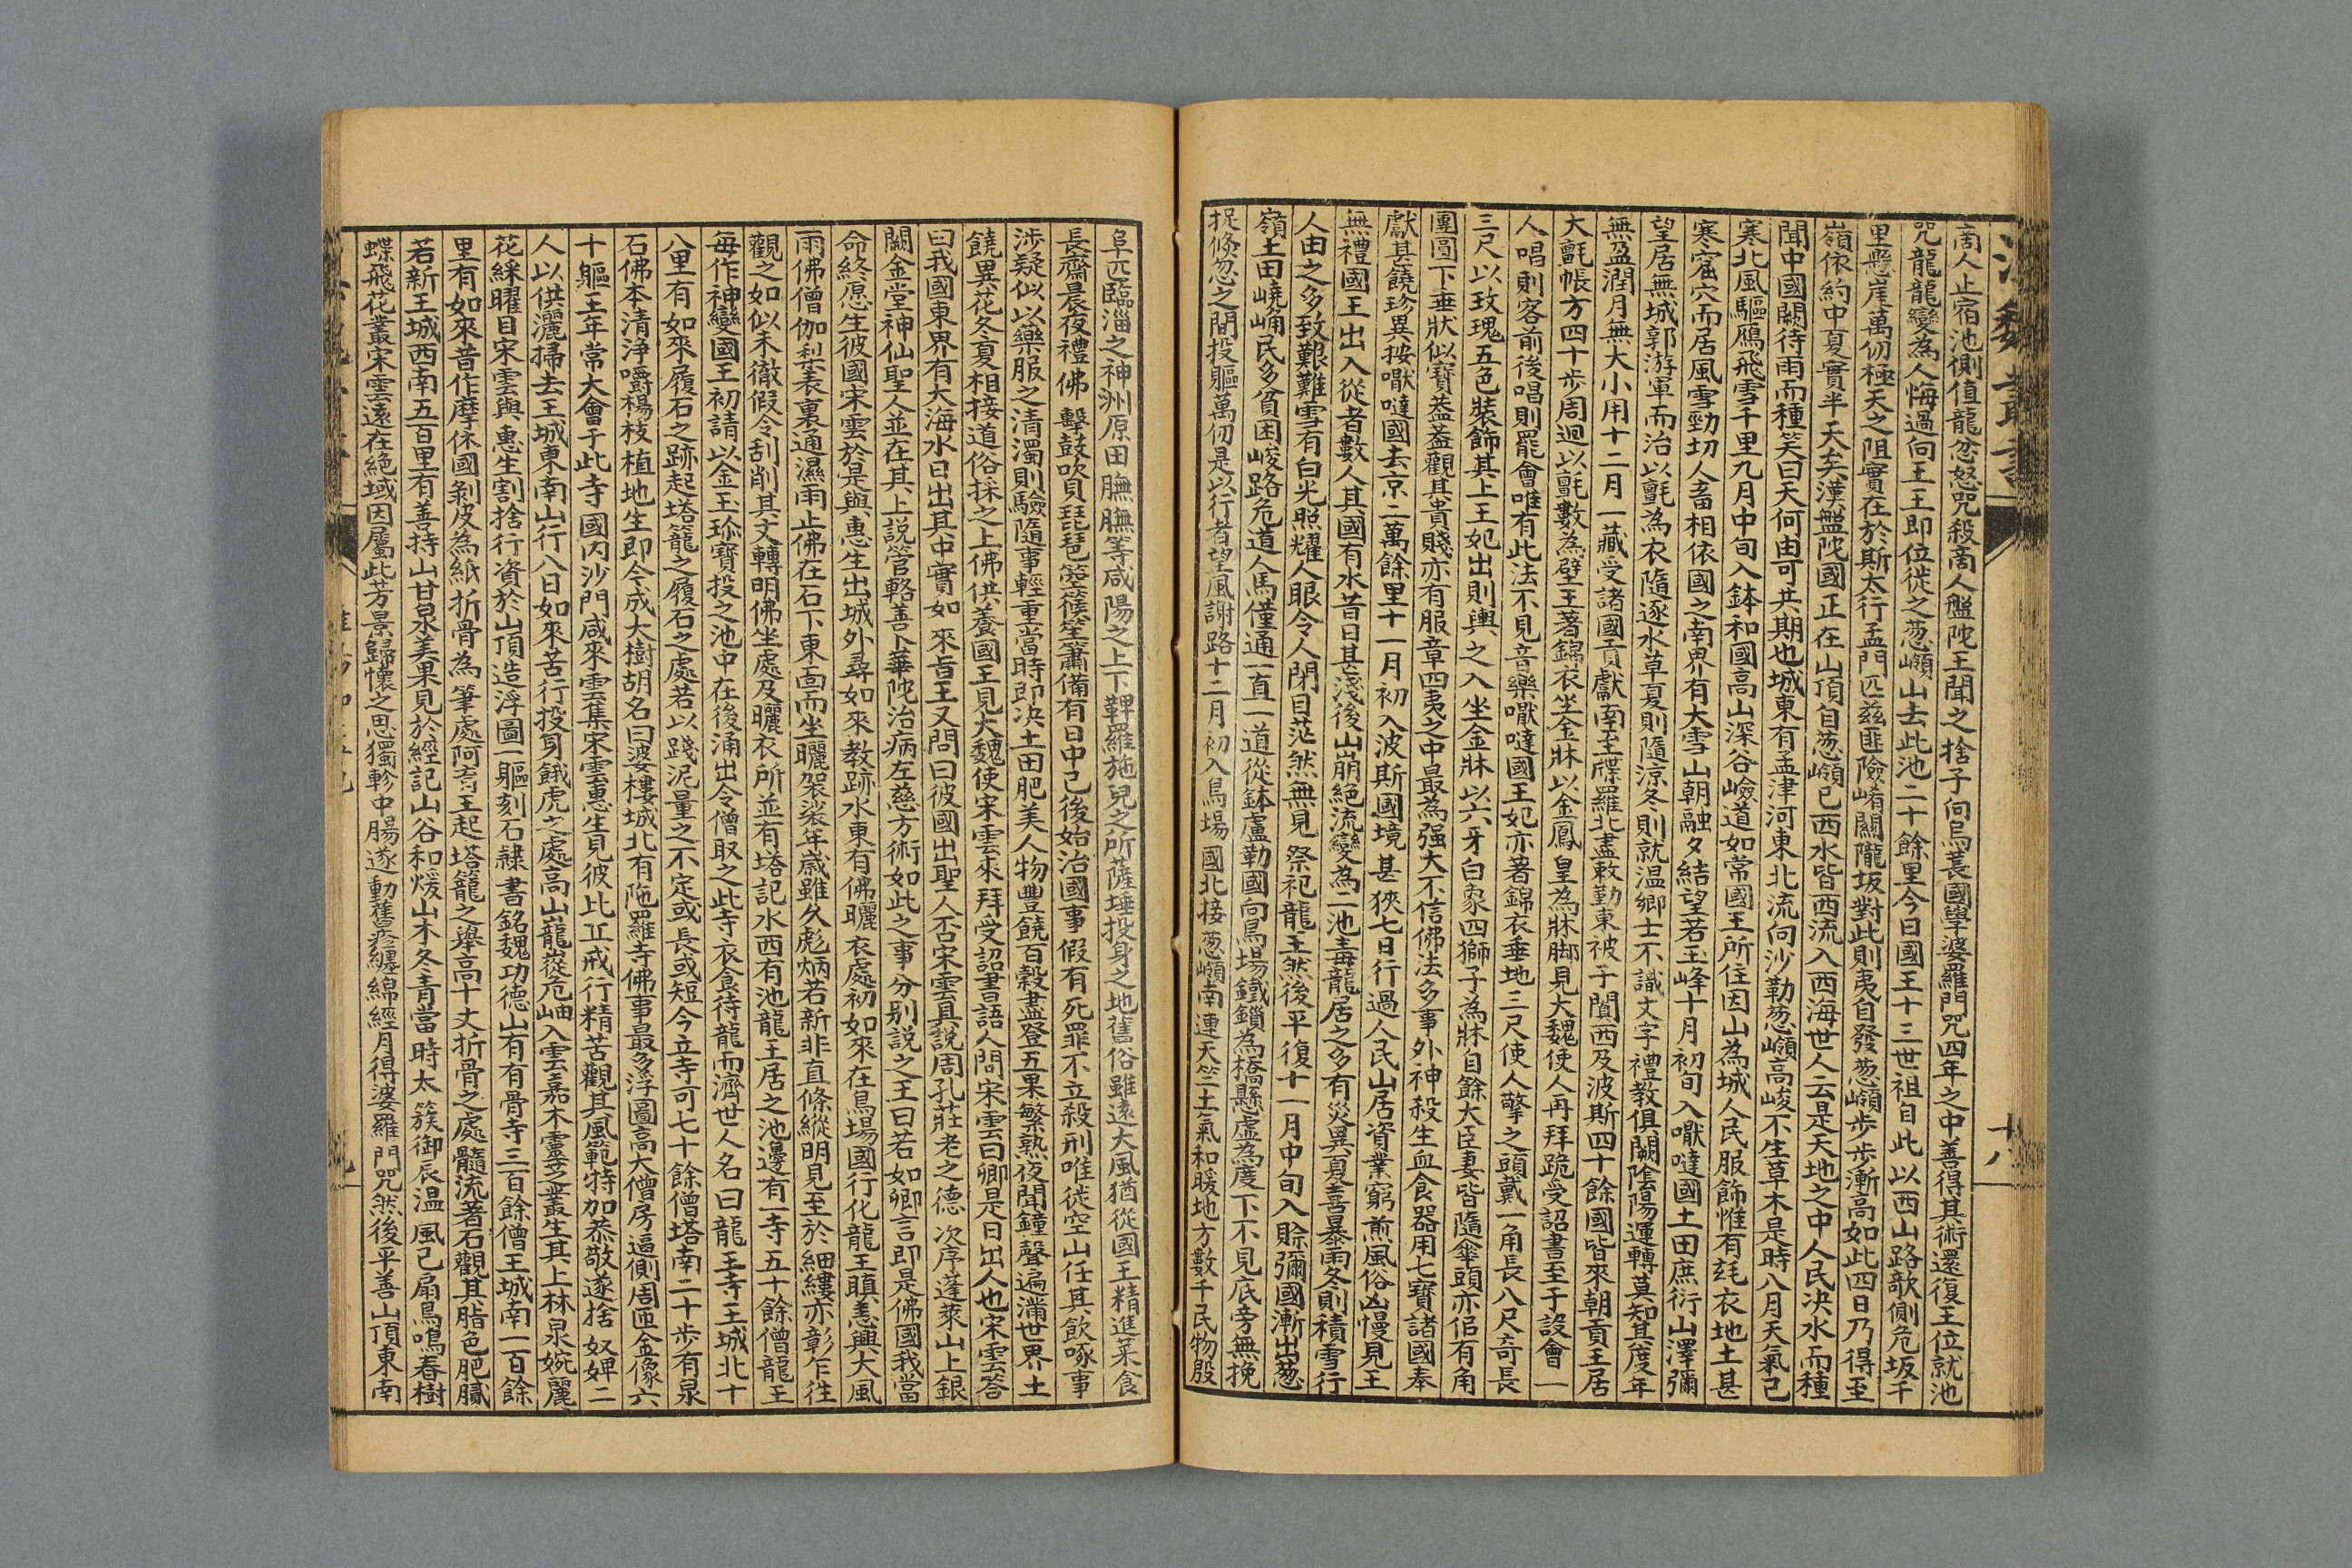 漢魏叢書
十八
商人止宿池側值龍忿怒咒殺商人盤陀王聞之捨子向烏萇國學婆羅門咒四年之中善得其術還復王位就池
咒龍龍變為人悔過向王王即位徙之葱嶺山去此池二十餘里今日國王十三世祖自此以西山路欹側危坂千
里懸崖萬仞極天之阻實在於斯太行孟門匹兹匪險崤關隴坂對此則夷自發葱嶺步步漸高如此四日乃得至
嶺依約中夏實半天矣漢盤陀國正在山頂自葱嶺已西水皆西流入西海世人云是天地之中人民決水而種
聞中國闕待雨而種笑曰天何由可共期也城東有孟津河東北流向沙勒葱嶺高峻不生草木是時八月天氣已
寒北風驅鴈飛雪千里九月中旬入鉢和國高山深谷嶮道如常國王所住因山為城人民服飾惟有氈衣地土甚
寒窟穴而居風雪勁切人畜相依國之南界有大雪山朝融夕結望若玉峰十月初旬入嚈噠國土田庶衍山澤彌
望居無城郭游軍而治以氈為衣隨逐水草夏則隨涼冬則就温鄉士不識文字禮教俱闕陰陽運轉莫知其度年
無盈潤月無大小用十二月一歲受諸國貢獻南至牒羅北盡敕勤東被于闐西及波斯四十餘國皆來朝貢王居
大氈帳方四十步周迴以氈數為壁王著錦衣坐金牀以金鳳皇為牀脚見大魏使人再拜跪受詔書至于設會一
人唱則客前後唱則罷會唯有此法不見音樂嚈噠國王妃亦著錦衣垂地三尺使人擎之頭戴一角長八尺竒長
三尺以玫瑰五色裝飾其上王妃出則輿之入坐金牀以六牙白象四獅子為牀自餘大臣妻皆隨傘頭亦佀有角
團圓下垂狀似寶葢葢觀其貴賤亦有服章四夷之中最為强大不信佛法多事外神殺生血食器用七寶諸國奉
獻甚饒珍異按嚈噠國去京二萬餘里十一月初入波斯國境甚狹七日行過人民山居資業窮煎風俗凶慢見王
無禮國王出入從者數人其國有水昔日甚淺後山崩絕流變為二池毒龍居之多有災異夏喜暴雨冬則積雪行
人由之多致艱難雪有白光照耀人眼令人閉目茫然無見祭祀龍王然後平復十一月中旬入賖彌國漸出葱
嶺土田嶢崅民多貧困峻路危道人馬僅通一直一道從鉢盧勒國向烏場鐵鎖為橋懸虛為度下不見底旁無挽
捉倐忽之間投軀萬仞是以行者望風謝路十二月初入烏場國北接葱嶺南連天竺土氣和暖地方數千民物殷
阜匹臨淄之神洲原田膴膴等咸陽之上下鞞羅施兒之所薩埵投身之地舊俗雖遠大風猶從國王精進菜食
長齋晨夜禮佛擊鼓吹貝琵琶箜篌笙簫備有日中已後始治國事假有死罪不立殺刑唯徙空山任其飲啄事
涉疑似以藥服之清濁則驗隨事輕重當時即決土田肥美人物豐饒百穀盡登五果繁熟夜聞鐘聲遍滿世界土
饒異花冬夏相接道俗採之上佛供養國王見大魏使宋雲來拜受詔書語人問宋雲曰卿是日出人也宋雲答
曰我國東界有大海水日出其中實如來旨王又問曰彼國出聖人否宋雲具說周孔莊老之德次序蓬萊山上銀
闕金堂神仙聖人並在其上說管輅善卜華陀治病左慈方術如此之事分別說之王曰若如卿言即是佛國我當
命終愿生彼國宋雲於是與惠生出城外尋如來教跡水東有佛曬衣處初如來在烏場國行化龍王瞋恚興大風
雨佛僧伽梨表裏通濕雨止佛在石下東面而坐曬袈裟年歲雖久彪炳若新非直條縫明見至於細縷亦彰乍徃
觀之如似未徹假令刮削其文轉明佛坐處及曬衣所並有塔記水西有池龍王居之池邊有一寺五十餘僧龍王
每作神變國王初請以金玉珎寶投之池中在後涌出令僧取之此寺衣食待龍而濟世人名曰龍王寺王城北十
八里有如來履石之跡起塔籠之履石之處若以踐泥量之不定或長或短今立寺可七十餘僧塔南二十步有泉
石佛本清浄嚼楊枝植地生即令成大樹胡名曰婆樓城北有陁羅寺佛事最多浮圖高大僧房逼側周匝金像六
十軀王年常大會于此寺國内沙門咸來雲集宋雲惠生見彼比丘戒行精苦觀其風範特加恭敬遂捨奴婢二
人以供灑掃去王城東南山行八日如來苦行投身餓虎之處高山巃嵸危岫入雲嘉木靈芝叢生其上林泉婉麗
花綵曜目宋雲與惠生割捨行資於山頂造浮圖一軀刻石隸書銘魏功德山有有骨寺三百餘僧王城南一百餘
里有如來昔作摩休國剥皮為紙折骨為筆處阿育王起塔籠之舉高十丈折骨之處髓流著石觀其脂色肥膩
若新王城西南五百里有善持山甘泉美果見於經記山谷和煖山木冬青當時太簇御辰温風已扇鳥鳴春樹
蝶飛花叢宋雲遠在絕域因屬此芳景歸懷之思獨軫中腸遂動舊疹纏綿經月得婆羅門咒然後平善山頂東南